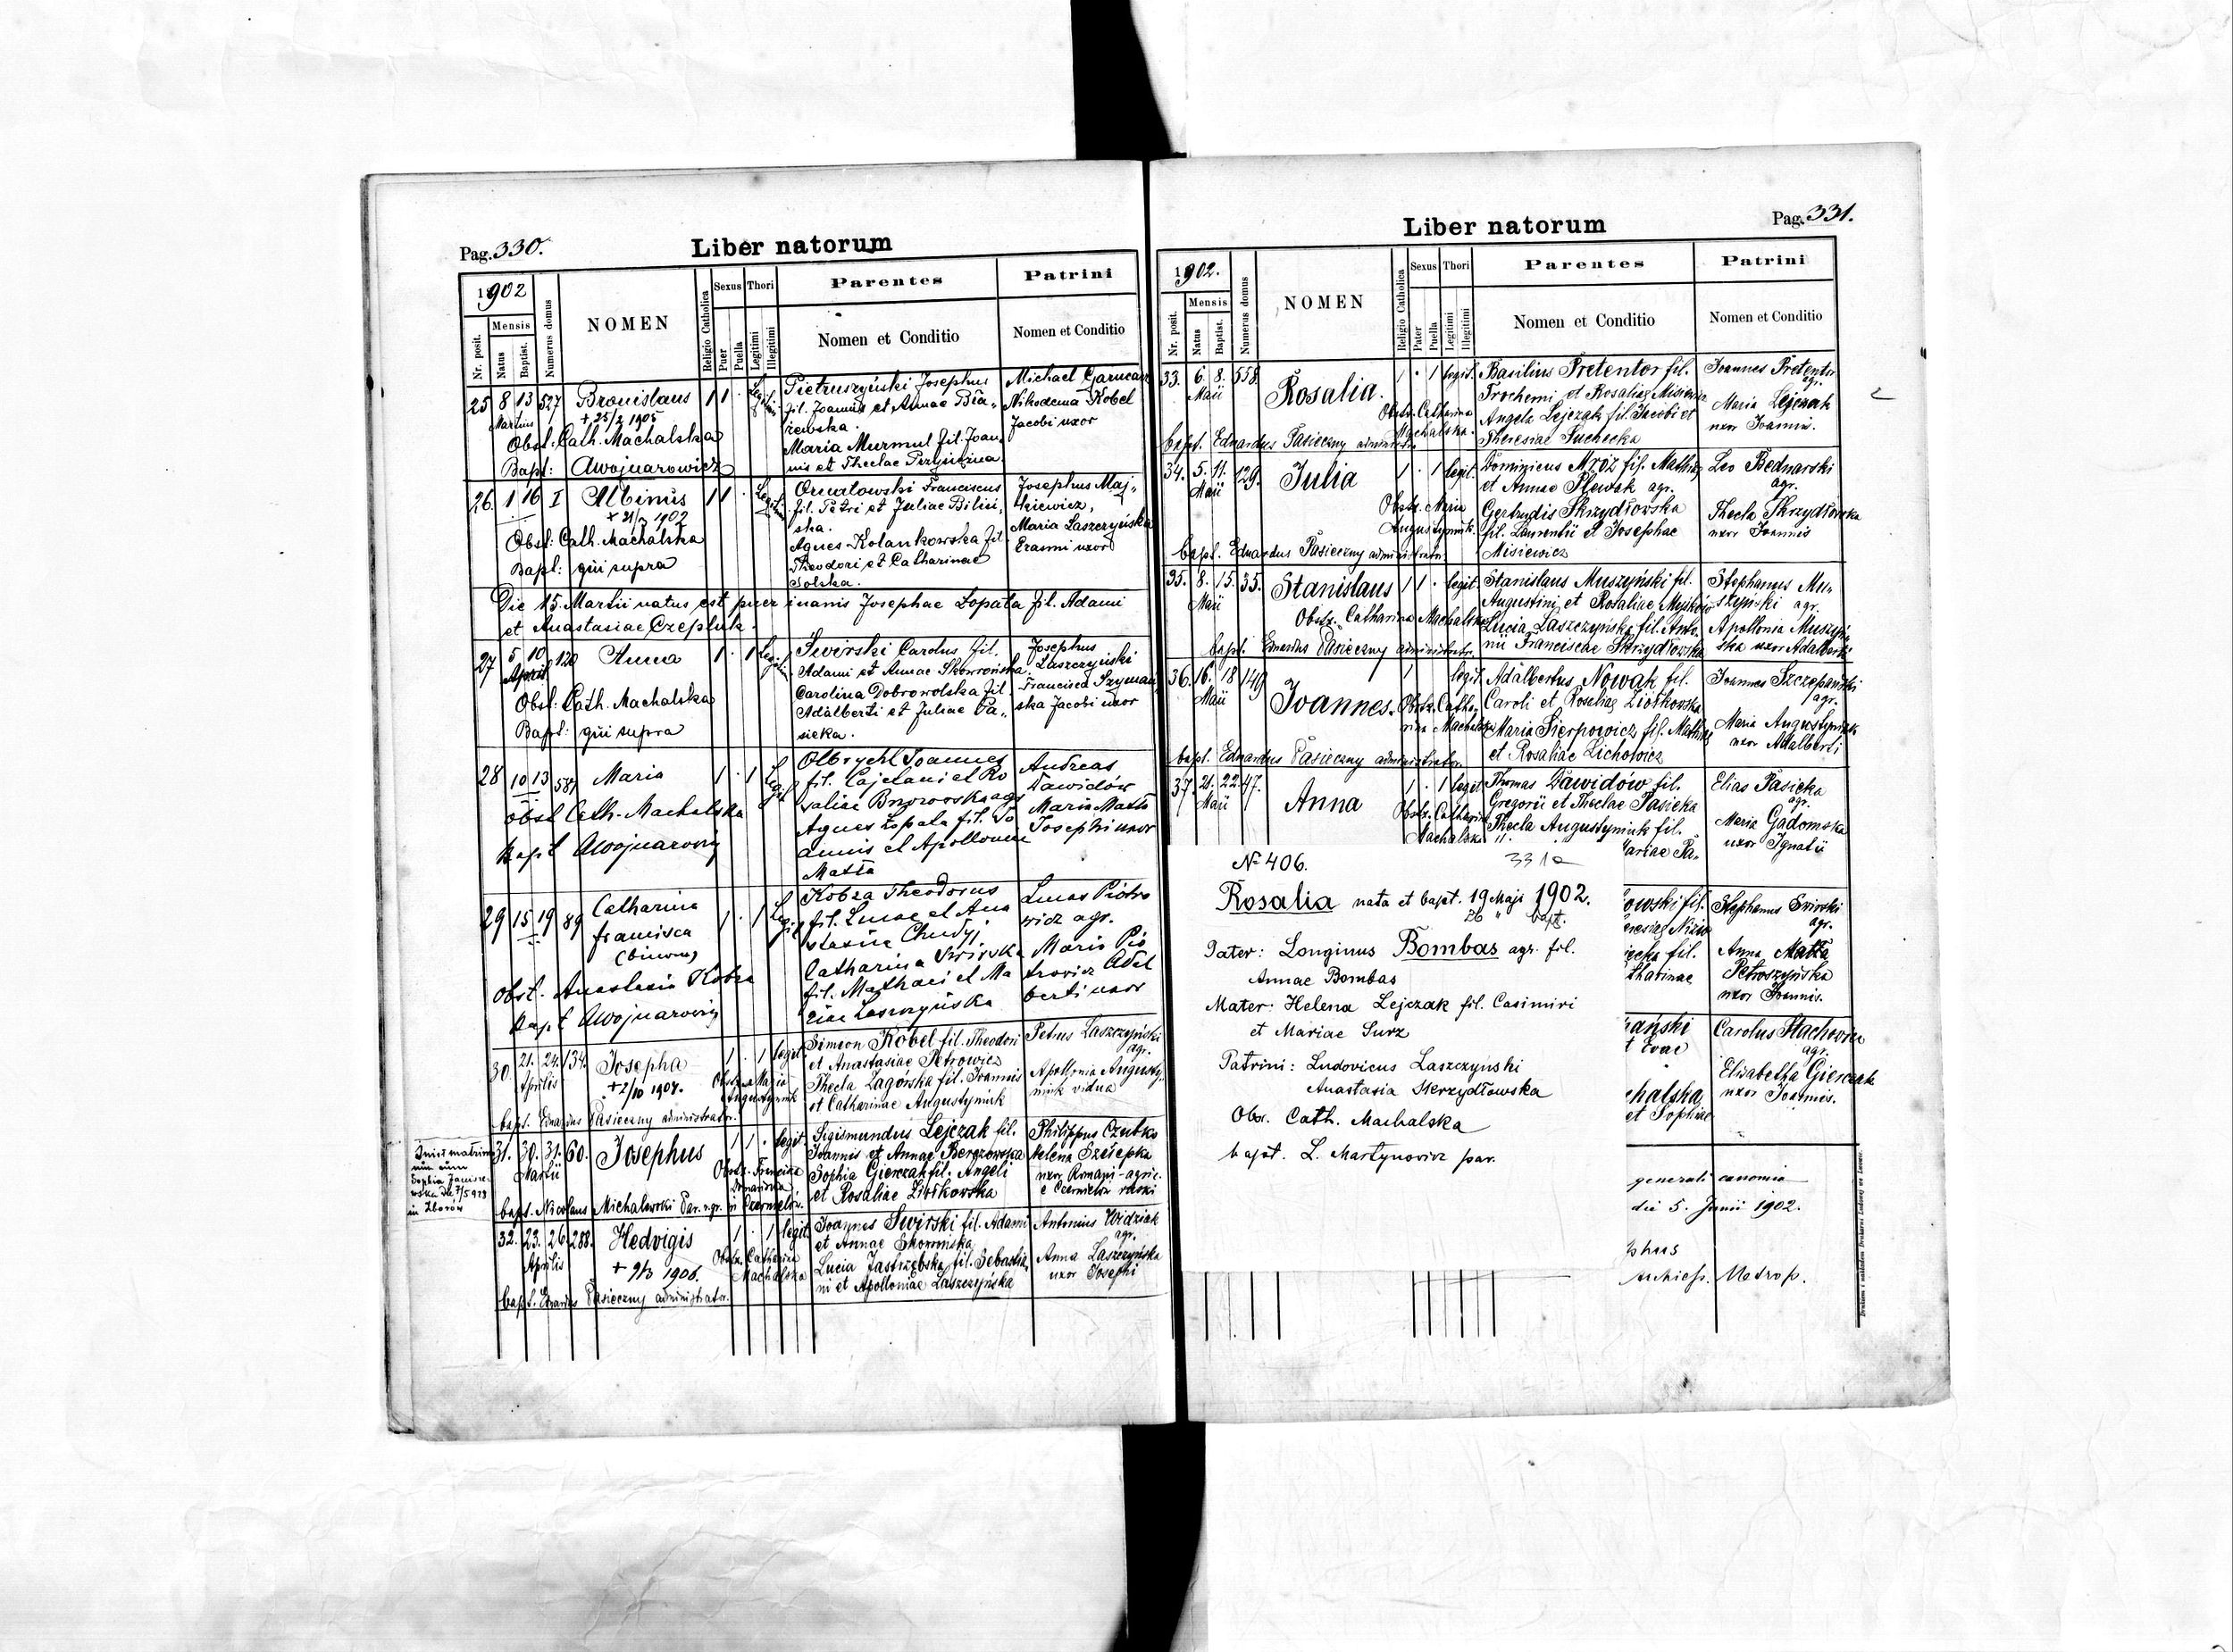 Pag. 330.
Liber natorum
1902
Nr. posit.
Mensis
Natus
Baptist.
Numerus domus
NOMEN
Religio Catholica
Sexus
Puer
Puella
Thori
Legitimi
Illegitimi
Parentes
Nomen et Conditio
Patrini
Nomen et Conditio
25 8 13 527 Bronislaus 1 1 .
Martius + 25/2 1905
Obst: Cath. Machalska
Bapt: Awojnarowicz
Pietruszyński Josephus
fil. Joannis et Annae
Maria Murmul fil. Joan„
nis et Theclae
Michael
Nikodema Kobel
Jacobi uxor
26. 1 16 I Albinus 1 1 .
Obst: Cath. Machalska
Bapt: qui supra
Franciscus
fil. Petri et Juliae
ska.
Agnes Kolankowska fil.
Theodori et Catharinae
Solska.
Josephus Maj„
Maria Laszczyńska
Erasmi uxor
Die 15. Martii natus est puer inanis Josephae Łopata fil. Adami
et Anastasiae Czepluk.
27 5 10 120 Anna 1 . 1
April
Obst: Cath. Machalska
Bapt: qui supra
Swirski Carolus fil.
Adami et Annae Skowrońska
Carolina Dobrowolska fil.
Adalberti et Juliae Pa„
sieka.
Josephus
Laszczyński
Francisca Szyman„
ska Jacobi uxor
28 10 13 587 Maria 1 . 1
obst Cath. Machalska
Bapt Awojnarowicz
Olbrycht Joannes
fil. Cajetani et Ro
saliae agr
Agnes Łopata fil. Jo
annis et Apolloniae
Matła
Andreas
Dawidów
Maria Matła
Josephi uxor
29 15 19 89 Catharina 1 . 1
francisca
(binom)
obst. Anastasia Kobza
Bapt Awojnarowicz
Kobza Theodosus
fil. Lucae et Ana
stasiae Chudyj
Catharina Swirska
fil. Mathaei et Ma
riae Laszczyńska
Lucas Piotro
wicz agr.
Maria Pio
trowicz Adal
berti uxor
30. 21. 24. 134. Josepha 1 . 1 legit.
Aprilis + 2/10 1904.
Obstr. Maria
Augustyniuk
bapt. Eduardus Pasieczny administrator.
Simeon Kobel fil. Theodori
et Anastasiae Petrowicz
Thecla Zagórska fil. Joannis
et Catharinae Augustyniuk
Petrus Laszczyński
agr.
Apollonia Augusty„
niuk vidua
in Zborów
31. 30. 31. 60. Josephus 1 1 . legit.
Martii
Obstr. Francisca
bapt. Nicolaus Michalewski Par. r.gr.
Sigismundus Lejczak fil.
Joannis et Annae
Sophia Gierczak fil. Angeli
et Rosaliae Ziółkowska
Philippus Czubko
Helena
uxor Romani - agric.
32. 23. 26. 288. Hedvigis 1 . 1 legit.
Aprilis + 9/3 1906.
Obstr. Catharina
Machalska
bapt. Eduardus Pasieczny administrator.
Joannes Swirski fil. Adami
et Annae Skowrońska
Lucia Jastrzębska fil. Sebastia„
ni et Apolloniae Laszczyńska
Antonius Widziak
agr.
Anna Laszczyńska
uxor Josephi
Liber natorum
Pag. 331.
1902.
Nr. posit.
Mensis
Natus
Baptist.
Numerus domus
NOMEN
Religio Catholica
Sexus
Puer
Puella
Thori
Legitimi
Illegitimi
Parentes
Nomen et Conditio
Patrini
Nomen et Conditio
33. 6. 8. 558. Rosalia. 1 . 1 legit.
Maii
Obstr. Catharina
Machalska.
bapt. Eduardus Pasieczny administr.
Basilius Pretentor fil.
Trochemi et Rosaliae Misiewicz
Angela Lejczak fil. Jacobi et
Theresiae Suchecka
Joannes Pretentor
agr.
Maria Lejczak
uxor Joannis.
34. 5. 11. 129. Julia 1 . 1 legit.
Maii
Obstr. Maria
Augustyniuk.
bapt. Eduardus Pasieczny administrator
Dominicus Mróz fil. Mathiae
et Annae Plewak agr.
Gertrudis Skrzydłowska
fil. Laurentii et Josephae
Misiewicz
Leo Bednarski
agr.
Thecla Skrzydłowska
uxor Joannis
35. 8. 15. 35. Stanislaus 1 1 . legit.
Maii
Obstr. Catharina Machalska
bapt. Eduardus Pasieczny administrator.
Stanislaus Muszyński fil.
Augustini et Rosaliae
Lucia Laszczyńska fil. Anto„
nii Franciscae Skrzydłowska
Stephanus Mu„
szyński agr.
Apollonia Muszyń„
ska uxor Adalberti
36. 16. 18 149 Joannes. 1 legit.
Maii
Obstr. Catha„
rina Machalska
bapt. Eduardus Pasieczny administrator
Adalbertus Nowak fil.
Caroli et Rosaliae Ziółkowska
Maria Sierpowicz fil. Mathiae
et Rosaliae Lichołwicz
Joannes Szczepański
agr.
Maria Augustyniuk
uxor Adalberti
37. 21. 22. 47. Anna 1 . 1 legit.
Maii
Obstr. Catharina
Machalska
Thomas Dawidów fil.
Gregorii et Theclae Pasieka
Thecla Augustyniuk fil.
Mariae Pa„
Elias Pasieka
agr.
Maria Gadomska
uxor Ignatii
№ 406.
331a
Rosalia nata et bapt. 19 Maji 1902.
26 " bapt.
Pater: Longinus Bombas agr. fil.
Annae Bombas
Mater: Helena Lejczak fil. Casimiri
et Mariae Surz
Patrini: Ludovicus Laszczyński
Anastasia Skrzydłowska
Obx. Cath. Machalska
bapt. L. Martynowicz par.
owski fil.
fil.
tharinae
Stephanus Swirski
agr.
Anna Matła
Petroszyńska
uxor Joannis.
ański
t Evae
chalska
et Sophiae
Carolus Stachowicz
agr.
Elisabetha Gierczak
uxor Joannis.
generali canomia
die 5. Junii 1902.
phus
Archiep. Metrop.